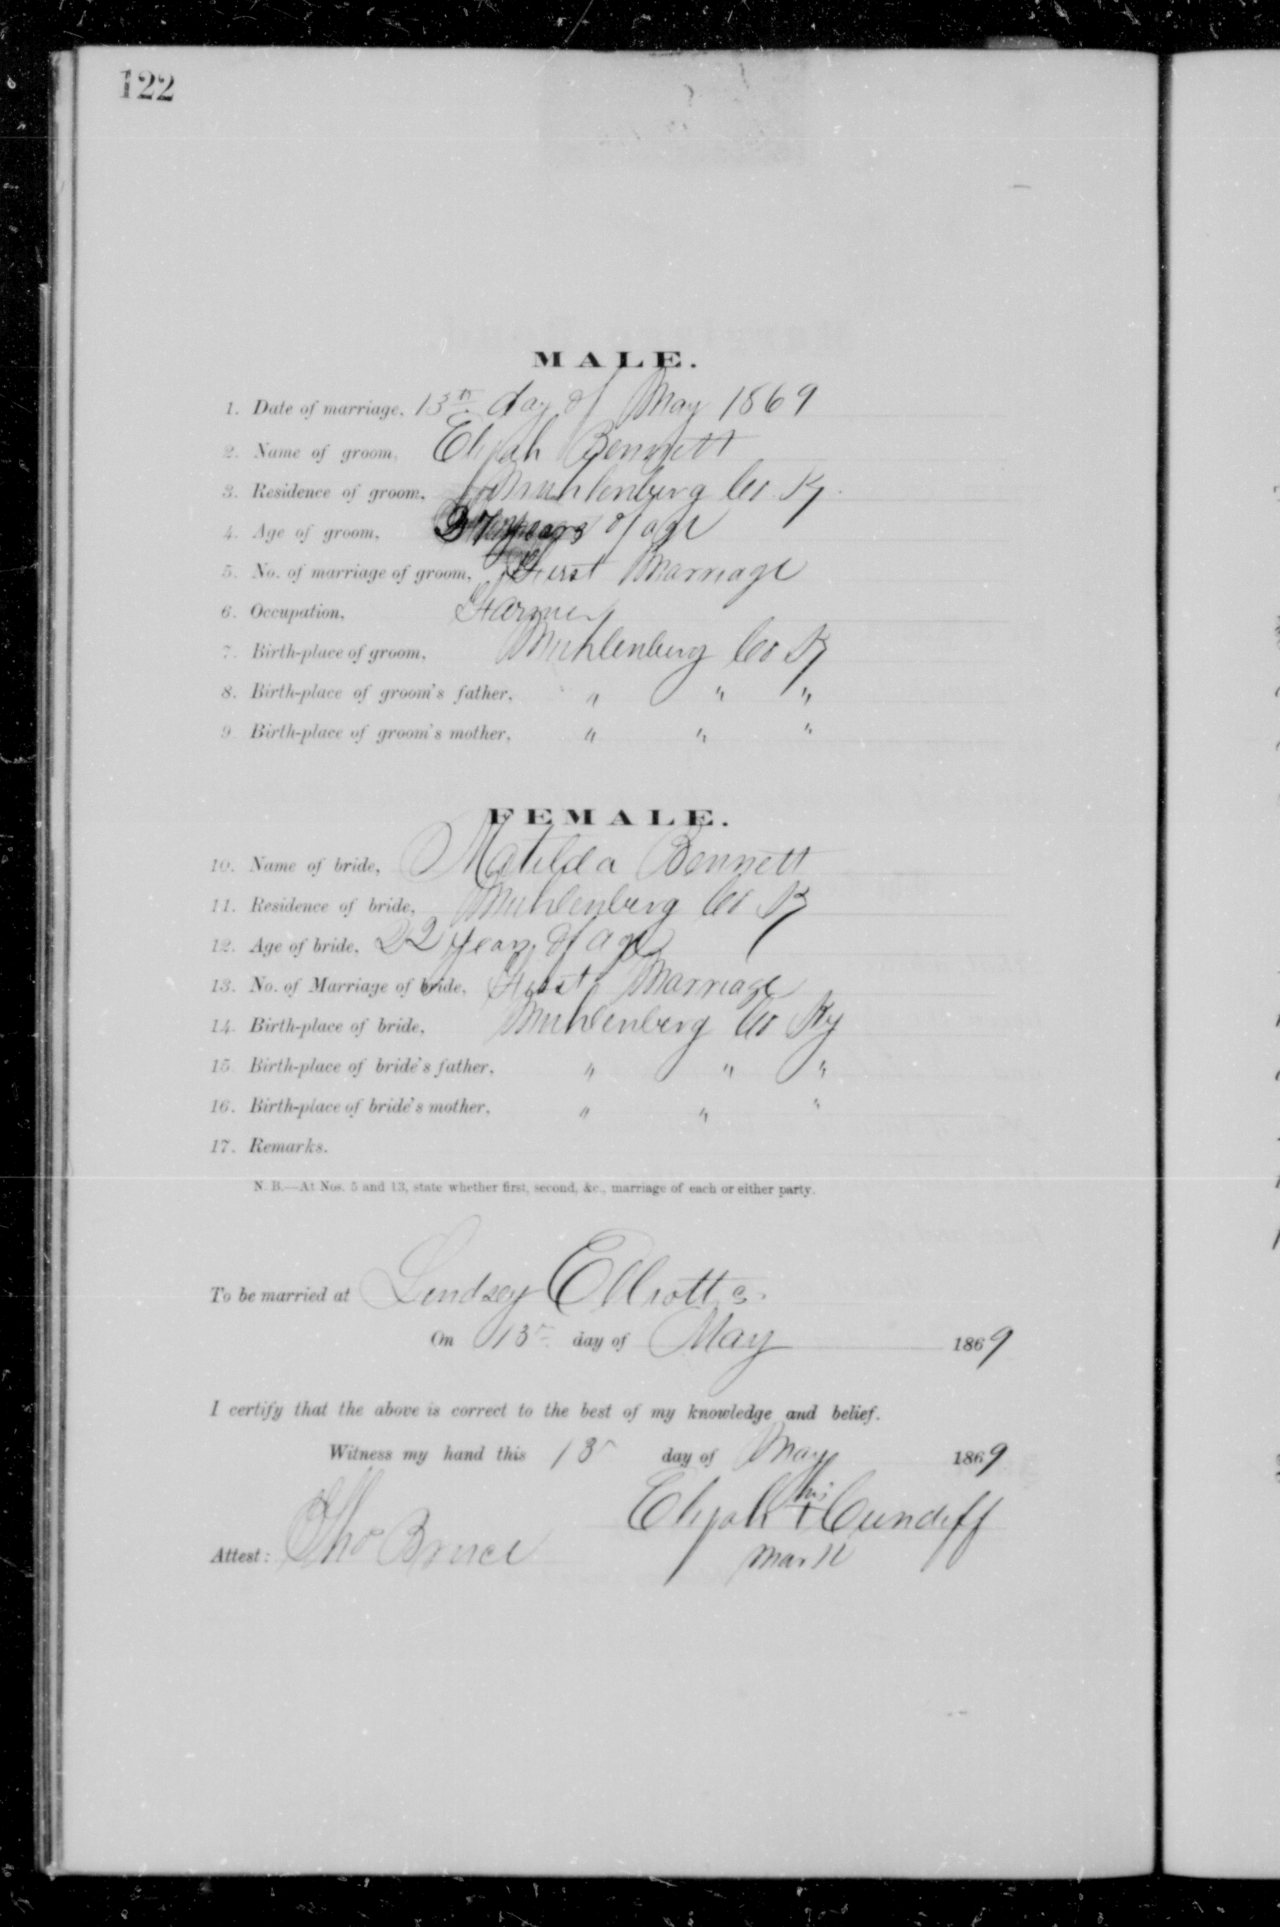 122
MALE.
1. Date of marriage, 13th day of May 1869
2. Name of groom, Elijah Bennett
3. Residence of groom, Muhlenberg Co Ky.
4. Age of groom, 27 years of age
5. No. of marriage of groom, First Marriage
6. Occupation, Farmer
7. Birth-place of groom, Muhlenberg Co Ky
8. Birth-place of groom's father, " " "
9. Birth-place of groom's mother, " " "
FEMALE.
10. Name of bride, Matilda Bennett
11. Residence of bride, Muhlenberg Co Ky
12. Age of bride, 22 years of age
13. No. of Marriage of bride, First Marriage
14. Birth-place of bride, Muhlenberg Co Ky
15. Birth-place of bride's father, " " "
16. Birth-place of bride's mother, " " "
17. Remarks.
N. B.—At Nos. 5 and 13, state whether first, second, &c., marriage of each or either party.
To be married at Lindsey Elliotts.
On 13th day of May 1869
I certify that the above is correct to the best of my knowledge and belief.
Witness my hand this 13 day of May 1869
his
Elijah + Cundiff
mark
Attest: Tho Bruce